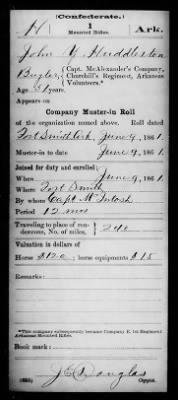 (Confederate.)
H 1 Ark.
Mounted Rifles.
John Y Huddleston
Bugler, Capt. McAlexander's Company, Churchill's Regiment, Arkansas Volunteers.*
Age 31 years.
Appears on
Company Muster-in Roll
of the organization named above. Roll dated
Fort Smith Ark June 9, 1861.
Muster-in to date June 9, 1861.
Joined for duty and enrolled:
When June 9, 1861.
Where Fort Smith
By whom Capt McIntosh
Period 12 mos
Traveling to place of rendezvous, No. of miles, 240
Valuation in dollars of
Horse $120; horse equipments $15
Remarks:
*This company subsequently became Company E, 1st Regiment Arkansas Mounted Rifles.
Book mark:
J E Douglas
Copyist.